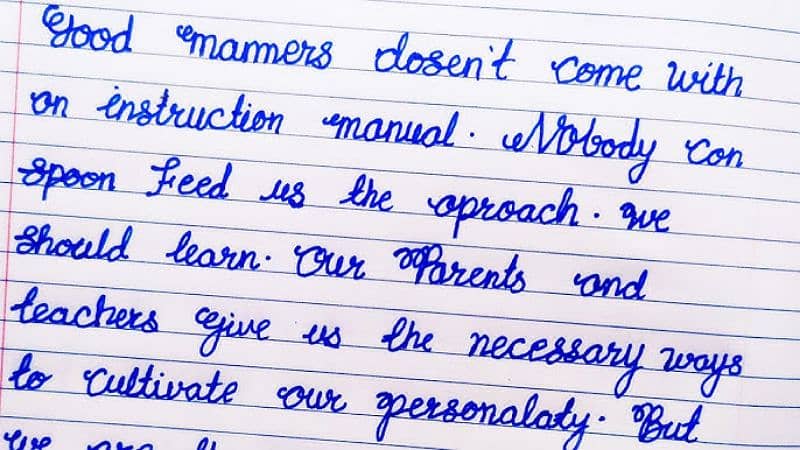 Good manners dosen't come with
an instruction manual. Nobody can
spoon feed us the aproach. we
should learn. Our Parents and
teachers give us the necessary ways
to cultivate our personalaty. But
we are